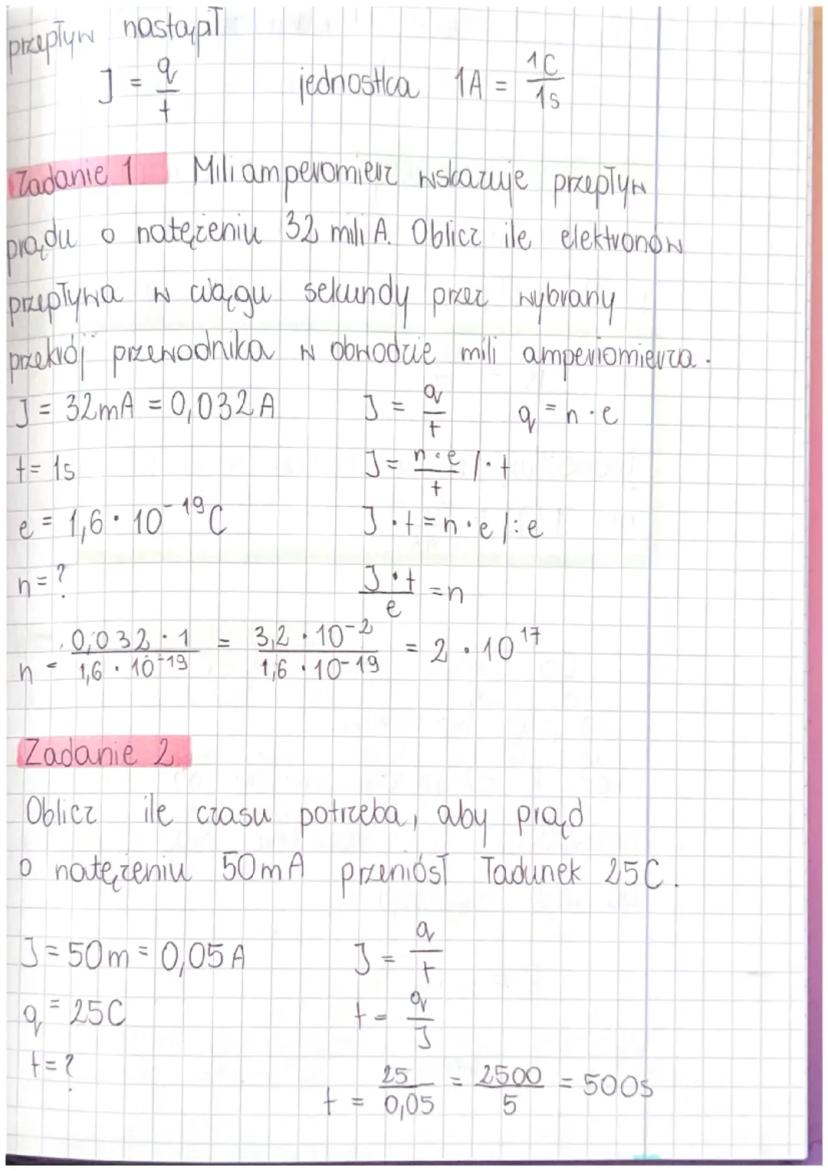 przepływ nastąpił
J = q/t jednostka 1A = 1C/1s
Zadanie 1 Miliamperomierz wskazuje przepływ
prądu o natężeniu 32 mili A. Oblicz ile elektronów
przepływa w ciągu sekundy przez wybrany
przekrój przewodnika w obwodzie mili amperiomierza.
J = 32mA = 0,032A J = q/t q = n · e
t = 1s J = n·e/t /· t
e = 1,6 · 10⁻¹⁹C J · t = n · e /: e
n = ? J·t/e = n
n = 0,032 · 1/1,6 · 10⁻¹⁹ = 3,2 · 10⁻²/1,6 · 10⁻¹⁹ = 2 · 10¹⁷
Zadanie 2
Oblicz ile czasu potrzeba, aby prąd
o natężeniu 50mA przeniósł ładunek 25C.
J = 50m = 0,05A J = q/t
q = 25C t = q/J
t = ?
t = 25/0,05 = 2500/5 = 500s